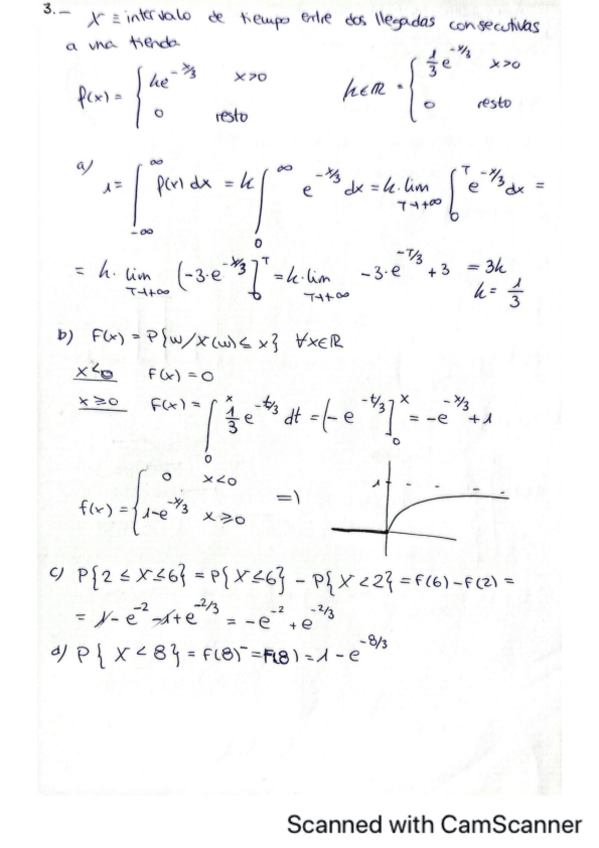 3.- X ≡ intervalo de tiempo entre dos llegadas consecutivas
a una tienda
f(x) = { ke^{-x/3} x>0 k∈ℝ = { 1/3 e^{-x/3} x>0
0 resto 0 resto
a) 1 = ∫_{-∞}^{∞} f(x) dx = k ∫_0^{∞} e^{-x/3} dx = k· lim_{T→+∞} ∫_0^T e^{-x/3} dx =
= k· lim_{T→+∞} (-3·e^{-x/3}]_0^T = k· lim_{T→+∞} -3·e^{-T/3} +3 = 3k
k = 1/3
b) F(x) = P{w/X(w) ≤ x} ∀x∈ℝ
x<0 F(x) = 0
x≥0 F(x) = ∫_0^x 1/3 e^{-t/3} dt = (-e^{-t/3}]_0^x = -e^{-x/3} +1
f(x) = { 0 x<0 =)
1-e^{-x/3} x≥0
1
c) P{2 ≤ X ≤ 6} = P{X ≤ 6} - P{X < 2} = F(6) - F(2) =
= 1 - e^{-2} - 1 + e^{-2/3} = -e^{-2} + e^{-2/3}
d) P{X < 8} = F(8)^- = F(8) = 1 - e^{-8/3}
Scanned with CamScanner